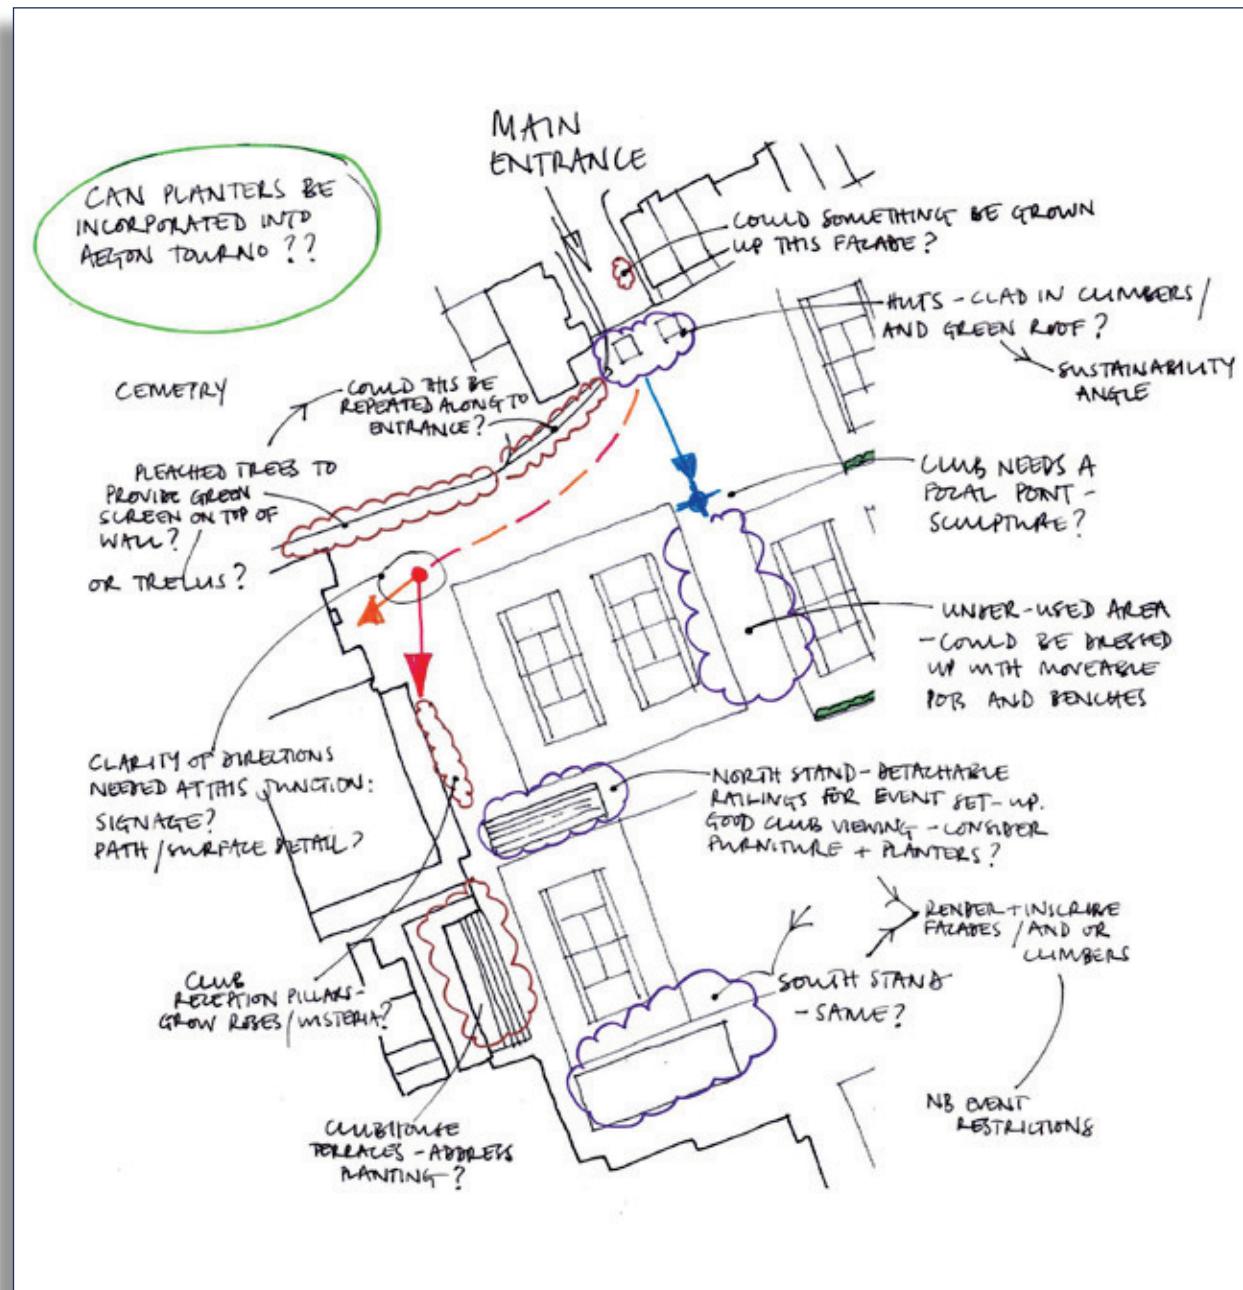 MAIN
ENTRANCE
CAN PLANTERS BE
INCORPORATED INTO
AEGON TOURNO ??
COULD SOMETHING BE GROWN
UP THIS FACADE?
HUTS - CLAD IN CLIMBERS /
AND GREEN ROOF?
SUSTAINABILITY
ANGLE
CEMETRY
COULD THIS BE
REPEATED ALONG TO
ENTRANCE?
PLEACHED TREES TO
PROVIDE GREEN
SCREEN ON TOP OF
WALL?
OR TRELLIS?
CLUB NEEDS A
FOCAL POINT -
SCULPTURE?
UNDER-USED AREA
- COULD BE DRESSED
UP WITH MOVEABLE
POTS AND BENCHES
CLARITY OF DIRECTIONS
NEEDED AT THIS JUNCTION:
SIGNAGE?
PATH / SURFACE DETAIL?
NORTH STAND - DETACHABLE
RAILINGS FOR EVENT SET-UP.
GOOD CLUB VIEWING - CONSIDER
FURNITURE + PLANTERS?
RENDER + INSCRIBE
FACADES / AND OR
CLIMBERS
SOUTH STAND
- SAME?
CLUB
RECEPTION PILLARS -
GROW ROSES / WISTERIA?
NB EVENT
RESTRICTIONS
CLUBHOUSE
TERRACES - ADDRESS
PLANTING?